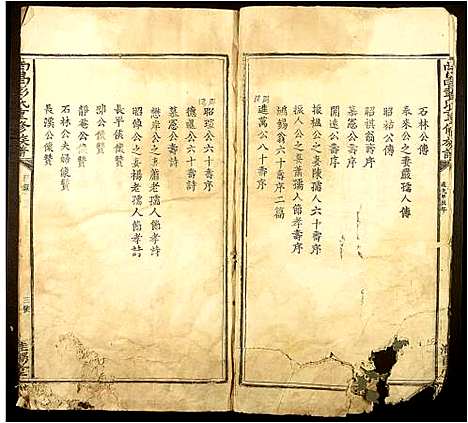 石林公傳
來朱公之妻嚴孺人傳
昭祜公傳
昭祺翁壽序
開遠公壽序
慕愿公壽序
振極公之妻陳孺人六十壽序
振人公之妻蕭孺人壽序
鴻錫公六十壽序二稿
進萬公八十壽序
昭瑄公六十壽序
德廬公六十壽序
慕愿公壽詩
懋岸公之妻蕭老孺人節孝詩
昭綠公之妻楊老孺人節孝詩
長平侯像贊
珠公像贊
靜菴公像贊
石林公夫婦像贊
長溪公像贊